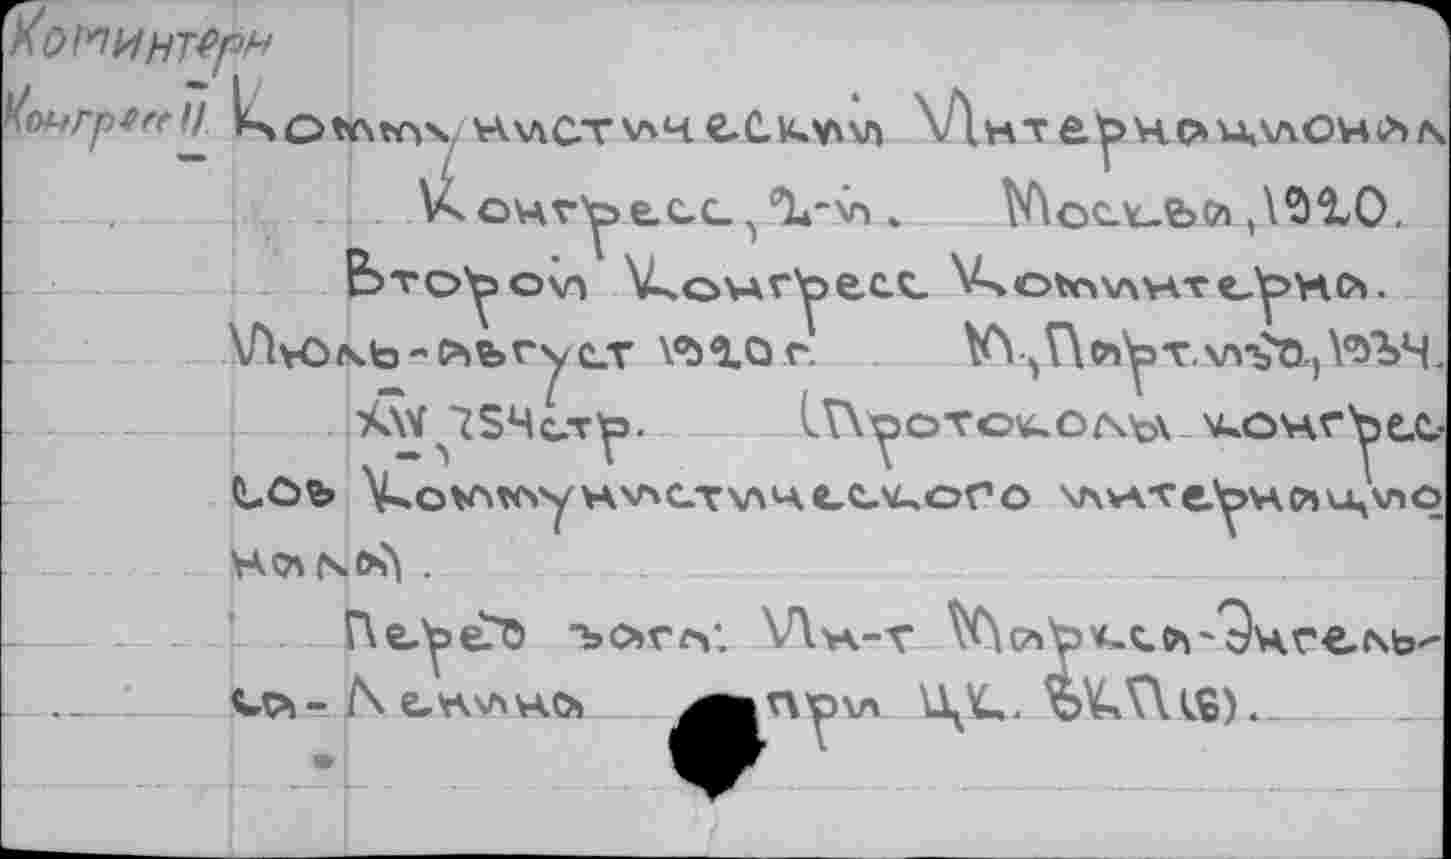 Коминтерн
Конгресс II Коммунистический Интернационал
Конгресс, 2-й. Москва, 1920.
Второй Конгресс Коминтерна.
Июль-август 1920г. М., Парт.изд., 1934.
XVI, 754стр. (Протоколы конгрес-
сов Коммунистического интернацио
нала).
Перед загл: Ин-т Маркса-Энгель-
са-Ленина при ЦК. ВКП(б).